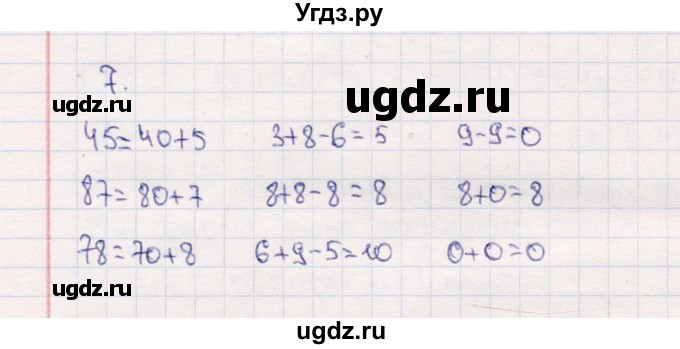 Угдз.ру
7.
ugdz.ru
ugdz.ru
45=40+5 3+8-6=5 9-9=0
87=80+7 8+8-8=8 8+0=8
ugdz.ru
78=70+8 6+9-5=10 0+0=0
ugdz.ru
ugdz.ru